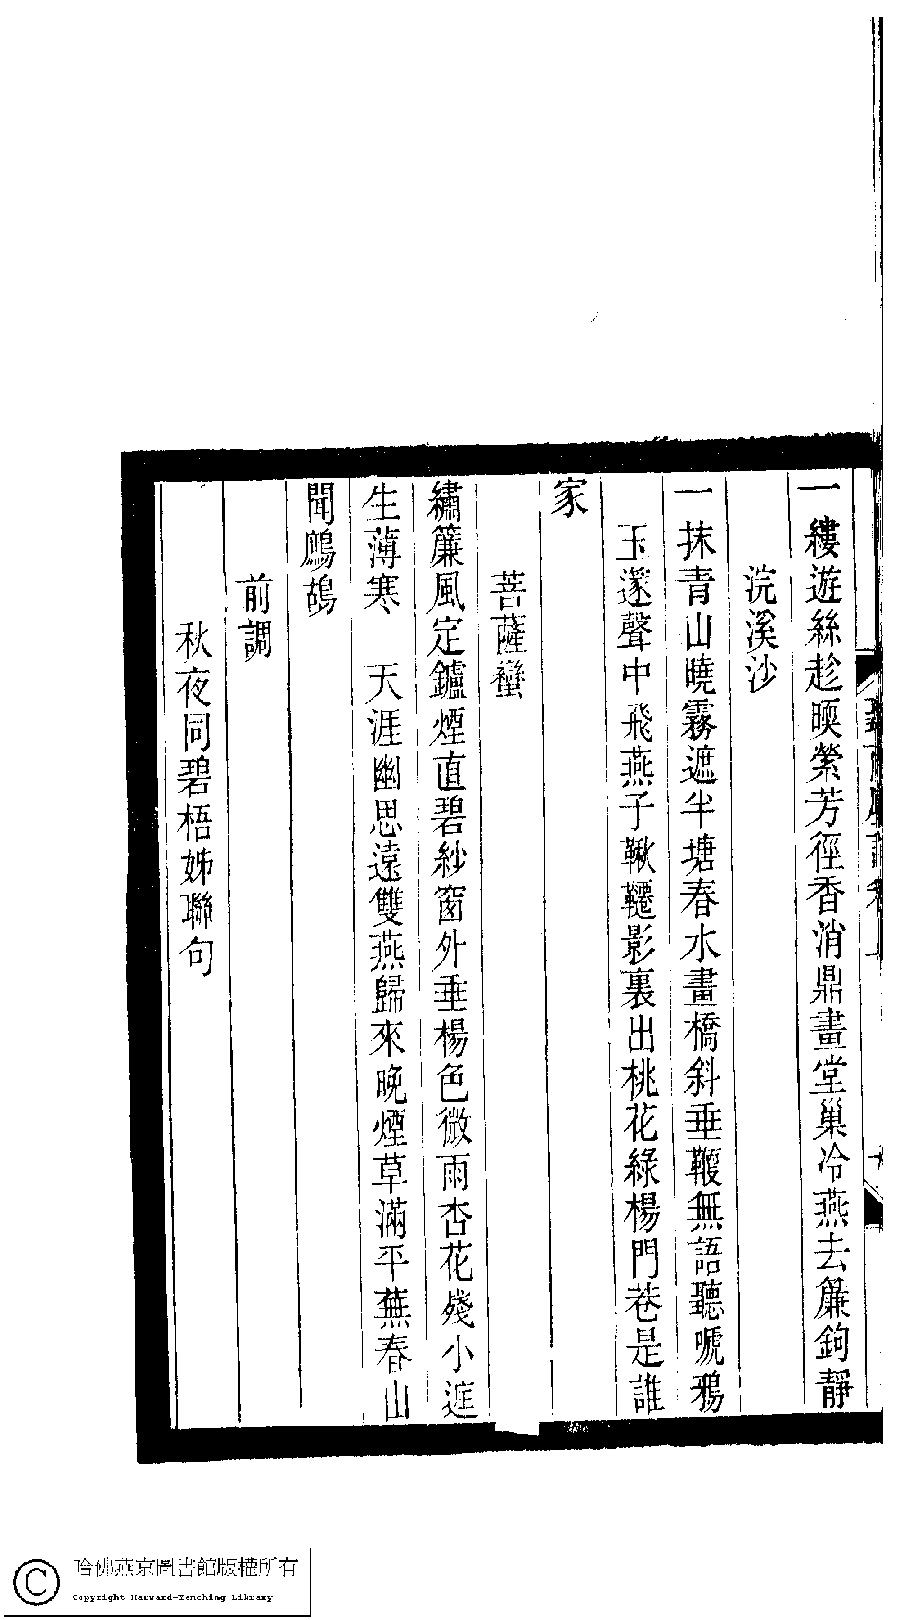 一縷遊絲趁暎縈芳徑香消鼎畫堂巢冷燕去簾鉤靜
浣溪沙
一抹青山曉霧遮半塘春水畫橋斜垂鞭無語聽嗁鴉
玉邃聲中飛燕子鞦韆影裏出桃花綠楊門巷是誰
家
菩薩蠻
繡簾風定鑪煙直碧紗窗外垂楊色微雨杏花殘小庭
生薄寒　天涯幽思遠雙燕歸來晚煙草滿平蕪春山
聞鷓鴣
前調
秋夜同碧梧姊聯句
哈佛燕京圖書館版權所有
Copyright Harvard-Yenching Library